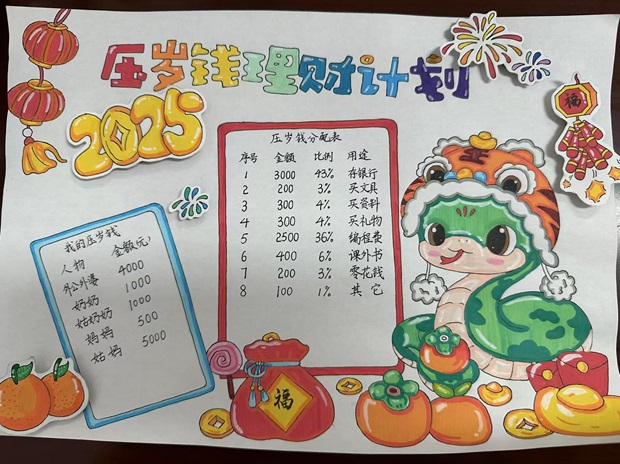 压岁钱理财计划
2025
福
压岁钱分配表
序号 金额 比例 用途
1 3000 43% 存银行
2 200 3% 买文具
3 300 4% 买资料
4 300 4% 买礼物
5 2500 36% 编程费
6 400 6% 课外书
7 200 3% 零花钱
8 100 1% 其它
我的压岁钱
人物 金额(元)
外公外婆 4000
奶奶 1000
姑奶奶 1000
妈妈 500
姑妈 5000
福